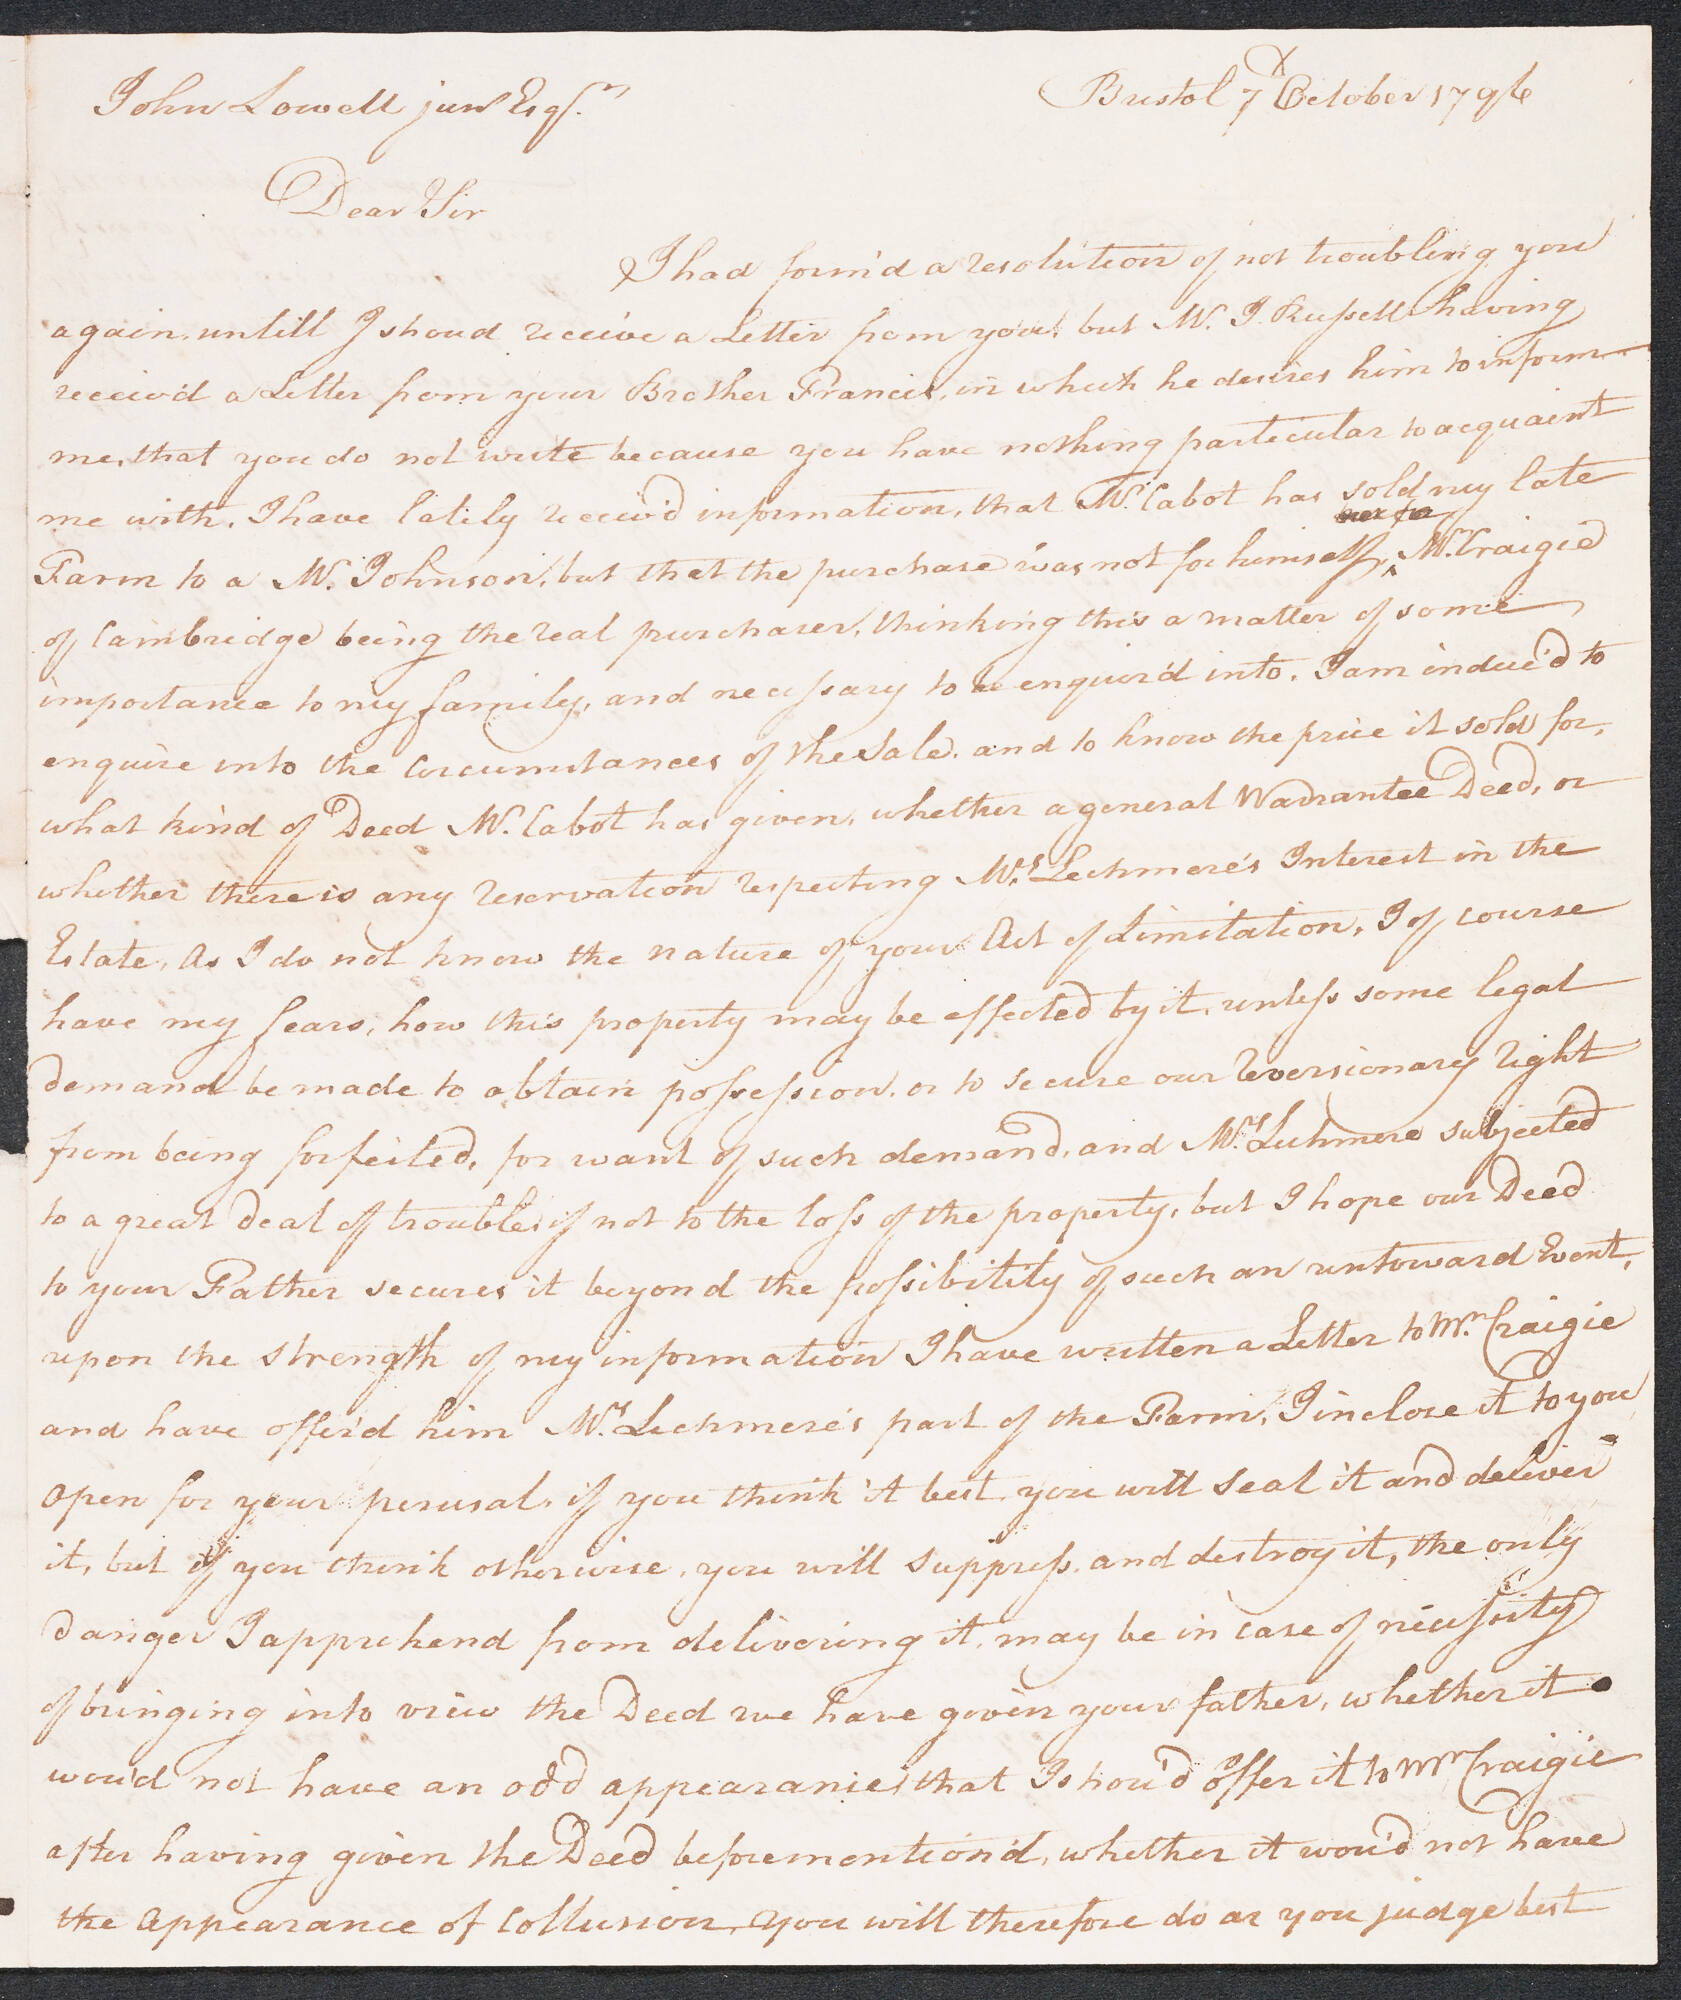 John Lowell junr Esqr.
Bristol 7 October 1796
Dear Sir
I had form'd a resolution of not troubling you
again, untill I shoud receive a Letter from you, but Mr. J. Russell having
receiv'd a Letter from your Brother Francis, in which he desires him to inform
me, that you do not write because you have nothing particular to acquaint
me with. I have lately receiv'd information, that Mr. Cabot has sold my late
Farm to a Mr. Johnson, but that the purchase was not for himself, Mr. Craigie
of Cambridge being the real purchaser, thinking this a matter of some
importance to my family, and necessary to be enquir'd into. I am induc'd to
enquire into the Circumstances of the Sale. and to know the price it sold for,
what kind of Deed Mr. Cabot has given, whether a general Warrantee Deed, or
whether there is any reservation respecting Mrs. Lechmere's Interest in the
Estate, As I do not know the nature of your Act of Limitation, I of course
have my fears, how this property may be effected by it, unless some legal
demand be made to obtain possession. or to secure our Reversionary right
from being forfeited, for want of such demand, and Mrs. Lechmere subjected
to a great deal of trouble, if not to the loss of the property, but I hope our Deed
to your Father secures it beyond the possibility of such an untoward Event,
upon the strength of my information I have written a Letter to Mr. Craigie
and have offer'd him Mrs. Lechmere's part of the Farm, I inclose it to you
open for your perusal, if you think it best you will Seal it and deliver
it, but if you think otherwise, you will suppress and destroy it, the only
danger I apprehend from delivering it, may be in Case of necessity
of bringing into view the Deed we have given your father, whether it
wou'd not have an odd appearance, that I shou'd offer it to Mr Craigie
after having given the Deed beforemention'd, whether it wou'd not have
the appearance of Collusion, you will therefore do as you judge best